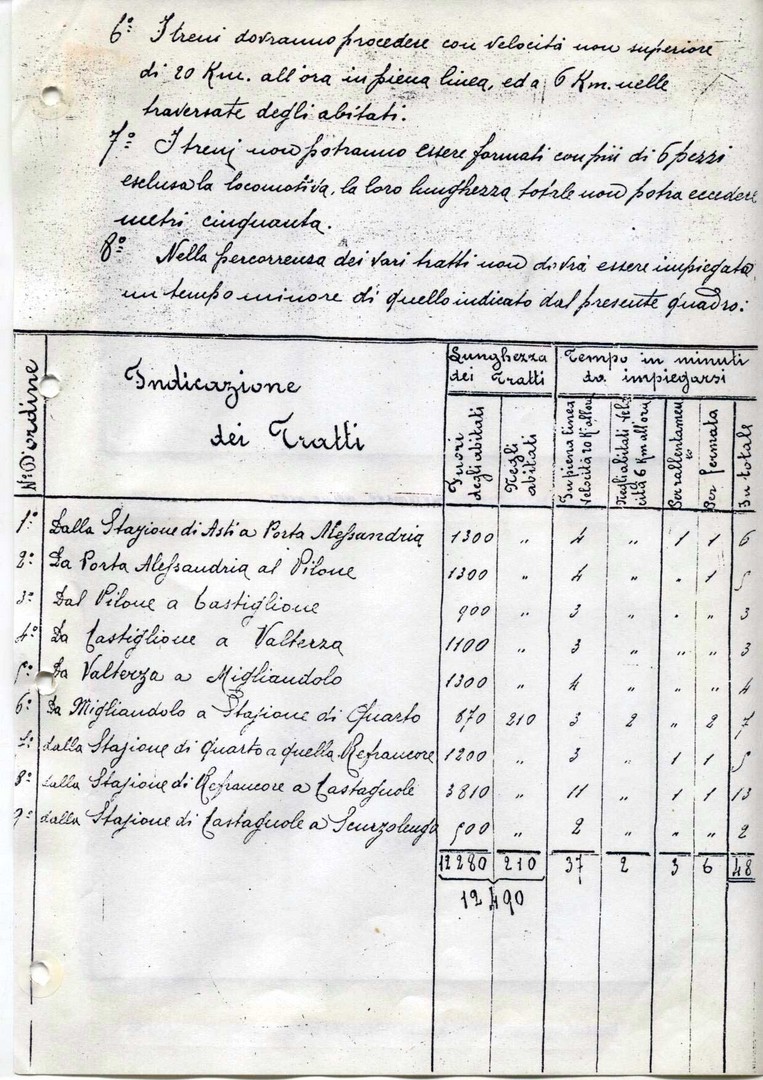 6º I treni dovranno procedere con velocità non superiore
di 20 Km. all'ora in piena linea, ed a 6 Km. nelle
traversate degli abitati.
7º I treni non potranno essere formati con più di 6 pezzi
esclusa la locomotiva, la loro lunghezza totale non potrà eccedere
metri cinquanta.
8º Nella percorrenza dei vari tratti non dovrà essere impiegato
un tempo minore di quello indicato dal presente quadro:
Nº D'ordine
Indicazione
dei Tratti
Lunghezza
dei Tratti
Tempo in minuti
da impiegarsi
Fuori
degli abitati
Negli
abitati
In piena linea
velocità 20 K. all'ora
Negli abitati velo
cità 6 Km all'ora
Per rallentamen
to
Per fermata
In totale
1º Dalla Stazione di Asti a Porta Alessandria 1300 " 4 " 1 1 6
2º Da Porta Alessandria al Pilone 1300 " 4 " " 1 5
3º Dal Pilone a Castiglione 900 " 3 " " " 3
4º Da Castiglione a Valterza 1100 " 3 " " " 3
5º Da Valterza a Migliandolo 1300 " 4 " " " 4
6º Da Migliandolo a Stazione di Quarto 870 210 3 2 " 2 7
7º dalla Stazione di Quarto a quella Refrancore 1200 " 3 " 1 1 5
8º dalla Stazione di Refrancore a Castagnole 3810 " 11 " 1 1 13
9º dalla Stazione di Castagnole a Scurzolengo 500 " 2 " " " 2
12280 210 37 2 3 6 48
12490